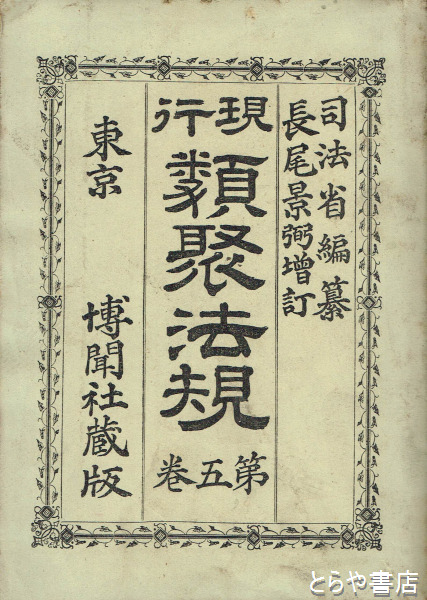 司法省編纂
長尾景弼增訂
現行
類聚法規
第五卷
東京 博聞社蔵版
とらや書店